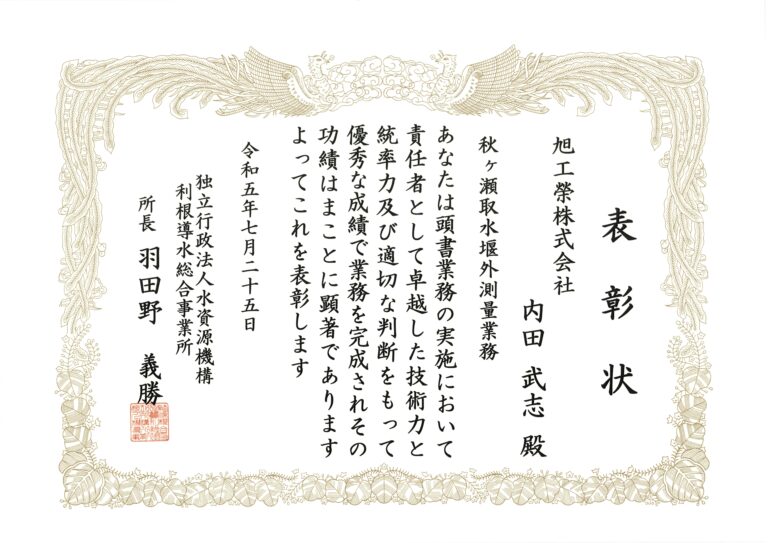 表彰状
旭工榮株式会社
内田 武志 殿
秋ヶ瀬取水堰外測量業務
あなたは頭書業務の実施において
責任者として卓越した技術力と
統率力及び適切な判断をもって
優秀な成績で業務を完成されその
功績はまことに顕著であります
よってこれを表彰します
令和五年七月二十五日
独立行政法人水資源機構
利根導水総合事業所
所長 羽田野 義勝